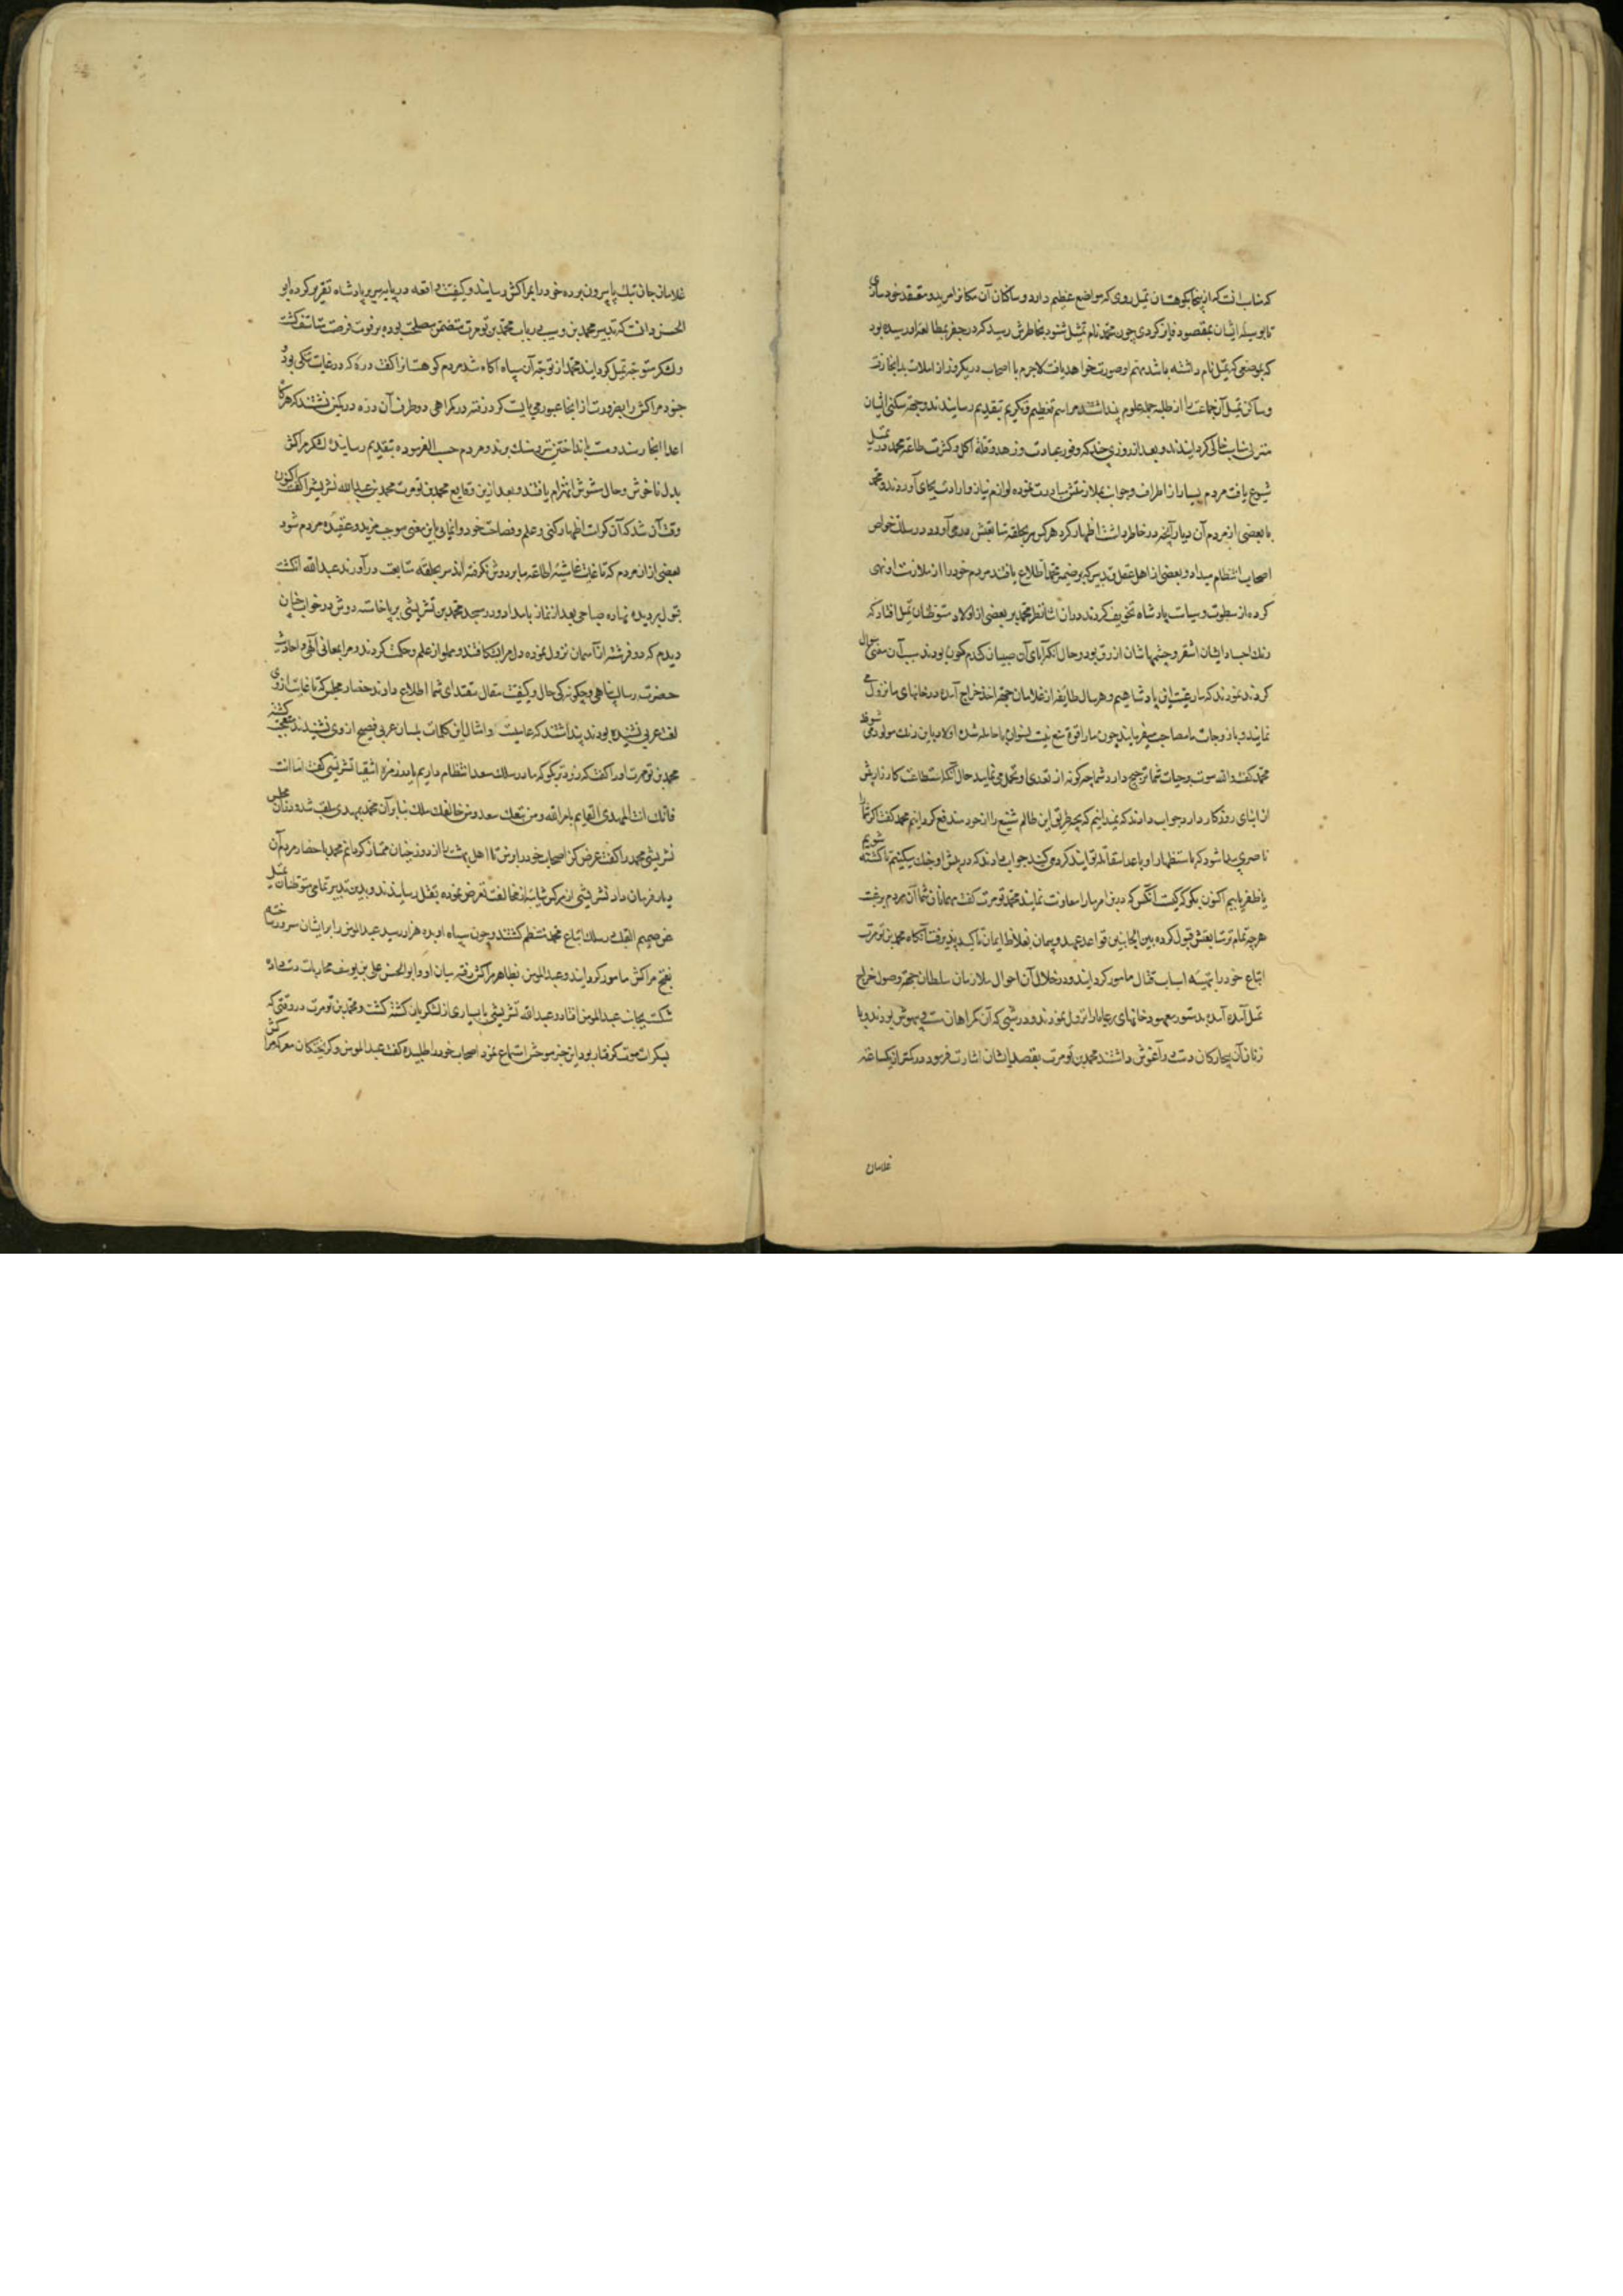 که مناسب آنست که از اینجا بکوهستان تمیل روی که مواضع عظیم دارد و ساکنان آن مکانرا مرید و معتقد خود سازی
تا بوسیله ایشان بمقصود فایز کردی چون محمد نام تمیل شنود بخاطرش رسید که در جفر بمطالعه او رسیده بود
که بموضعی که تمیل نام داشته باشد مهم او صورت خواهد یافت لاجرم با اصحاب در یکروز از املات بدانجا رفت
و ساکن تمیل آن جماعت را از طلبه علوم پنداشتند مراسم تعظیم و تکریم بتقدیم رسانیدند و جهة سکنی ایشان
منزلی مناسب خالی کردانیدند و بعد از روزی چند که وفور عبادت و زهد و قلة اکل و کثرت طاعة محمد در تمیل
شیوع یافت مردم بسیار از اطراف و جوانب بملازمتش مبادرت نموده لوازم نیاز و ارادت بجای آوردند و محمد
با بعضی از مردم آن دیار آنچه در خاطر داشت اظهار کرد هر کس سر بحلقه متابعتش در می آورد در سلک خواص
اصحاب انتظام میداد و بعضی از اهل عقل و تدبیر که بر ضمیر محمد اطلاع یافتند مردم خود را از ملازمت او نهی
کرده از سطوت و سیاست پادشاه تخویف کردند در آن اثنا نظر محمد بر بعضی از اولاد متوطنان تمیل افتاد که
رنک اجساد ایشان اشقر و چشمهاشان ازرق بود و حال آنکه آبای آن صبیان کندم کون بودند سبب آن معنی سوال
کردند نمودند که ما رعیت این پادشاهیم و هر سال طایفه از غلامان جهة اخذ خراج آمده در خانهای ما نزول می
نمایند و با زوجات ما مصاحبت میفرمایند چون ما را قوة منع نیست نسوان ما حامله شده اولاد باین رنک متولد می شود
محمد کفت والله موت بر حیات شما ترجیح دارد شما چکونه از تعدی او تحمل می نمایید حال آنکه استطاعت کارزار بیش
از ابنای روزکار دارید جواب دادند که نمیدانیم که بچه طریق این ظالم شنیع را از خود مندفع کردانیم محمد کفت اکر شما را
ناصری پیدا شود که باستظهار او با اعدا مقاتله نمایید کرد می کنید جواب دادند که در پیش او جنک میکنیم تا کشته شویم
یا ظفر یابیم اکنون بکو که کیست آنکس که درین امر ما را معاونت نماید محمد تومرت کفت مهمانان شما آن مردم برغبت
هرچه تمام تر متابعتش قبول کرده بین الجانبین قواعد عهد و پیمان بغلاظ ایمان تاکید پذیرفت آنکاه محمد بن تومرت
اتباع خود را بتهیه اسباب قتال مامور کردانید و در خلال آن احوال ملازمان سلطان جهة وصول خراج
تمیل آمده بدستور معهود خانهای رعایا را نزول نمودند و در شبی که آن کمراهان مست و بیهوش بودند و با
زنان آن بیچارکان دست در آغوش داشتند محمد بن تومرت بقصد ایشان اشارت فرمود در کمتر از یکساعت
غلامان
غلامان جان تنک پا بیرون برده خود را بمراکش رسانیدند و کیفیت واقعه در پایه سریر پادشاه تقریر کرده ابو
الحسن دانست که تدبیر محمد بن وهیب در باب محمد بن تومرت متضمن مصلحت بوده بر فوت فرصت متاسف کشت
و لشکر متوجه تمیل کردانید محمد از توجه آن سپاه آکاه شد مردم کوهستانرا کفت در دره که در غایت تنکی بود
جنود مراکش را بضرورت از انجا عبور می بایست کرد رفته در کمراهی دو طرف آن دره در کمین نشستند که هرکاه
اعدا انجا رسند دست بانداختن تیر و سنک برند و مردم حسب الفرموده بتقدیم رسانیدند لشکر مراکش
بدل ناخوش و حال مشوش انهزام یافتند و بعد ازین وقایع محمد بن تومرت محمد بن عبدالله نشریشی را کفت اکنون
وقت آن شد که آن کرامات اظهار کنی و علم و فصاحت خود وانمایی این معنی موجب مزید عقیده مردم شود
بعضی از ان مردم که تا غایت غاشیه اطاعت ما بر دوش نکرفته اند سر بحلقه متابعت درآورند عبدالله انکشت
قبول بر دیده نهاده صباحی بعد از نماز بامداد در مسجد محمد بن نشریشی برپا خاست دوش در خواب چنان
دیدم که دو فرشته از آسمان نزول نموده دل مرا بشکافتند و مملو از علم و حکمت کردند و مرا بمعانی آلهی و احادیث
حضرت رسالت پناهی و چکونکی حال و کیفیت مقال مقتدای شما اطلاع دادند حضار مجلس که تا غایت از وی
لفظ عربی نشنیده بودند پنداشتند که عامیست و امثال این کلمات بلسان عربی فصیح از وی نشنیدند متعجب کشته
محمد بن تومرت او را کفت که زودتر بکو که ما در سلک سعدا انتظام داریم یا در زمره اشقیا نشریشی کفت اما انت
فانک انت المهدی القایم بامر الله و من تبعک سعد و من خالفک هلک بنابر آن محمد بمهدی ملقب شد و در آن مجلس
نشریشی محمد را کفت عرض کن اصحاب خود را بر من تا اهل بهشت را از دوزخیان ممتاز کردانم محمد باحضار مردم آن
دیار فرمان داد نشریشی از هر کس شائبه مخالفت تفرس نموده بقتل رسانیدند و بدین تدبیر تمامی متوطنان تمیل
عن صمیم القلب در سلک اتباع محمد منتظم کشتند و چون سپاه او بده هزار رسید عبدالمومن را بر ایشان سرور ساخته
بفتح مراکش مامور کردانید و عبدالمومن بظاهر مراکش رفته میان او و ابوالحسن علی بن یوسف محاربات دست داده
شکست بجانب عبدالمومن افتاد و عبدالله نشریشی با بسیاری از لشکریان کشته کشت و محمد بن تومرت در وقتی که
بسکرات موت کرفتار بود این خبر موحش استماع نموده اصحاب خود را طلبیده کفت عبدالمومن و کریختکان معرکه مراکش